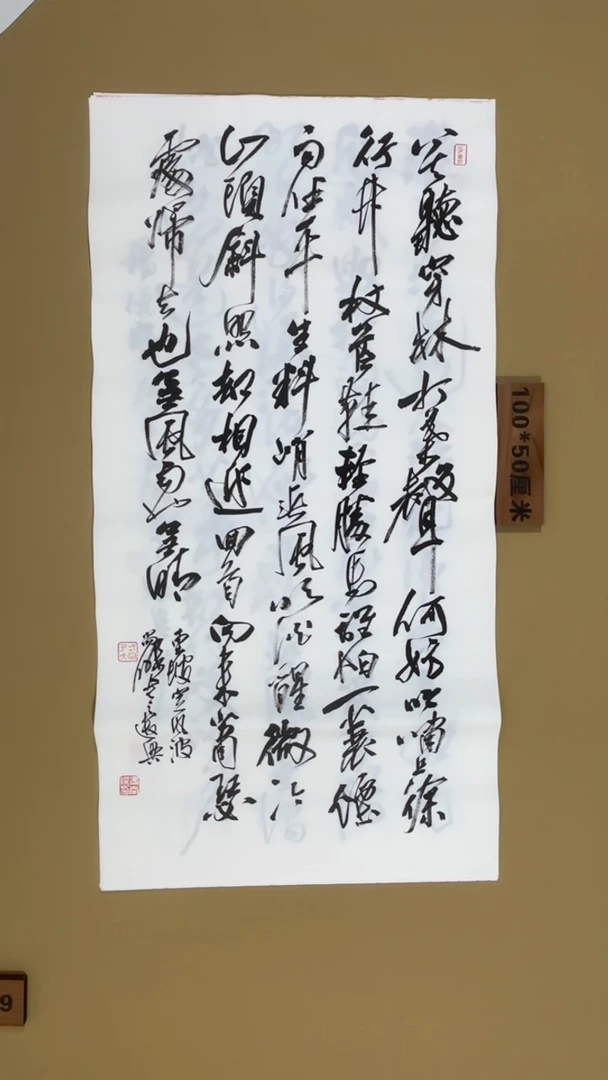 莫聽穿林打葉聲何妨吟嘯且徐
行竹杖芒鞋輕勝馬誰怕一蓑煙
雨任平生料峭春風吹酒醒微冷
山頭斜照却相迎回首向來蕭瑟
處歸去也無風雨也無晴
東坡定風波
100*50厘米
9